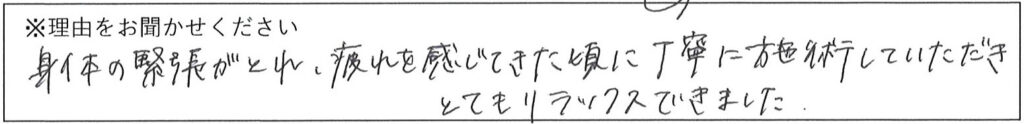 ※理由をお聞かせください
身体の緊張がとれ、疲れを感じてきた頃に丁寧に施術していただき
とてもリラックスできました.